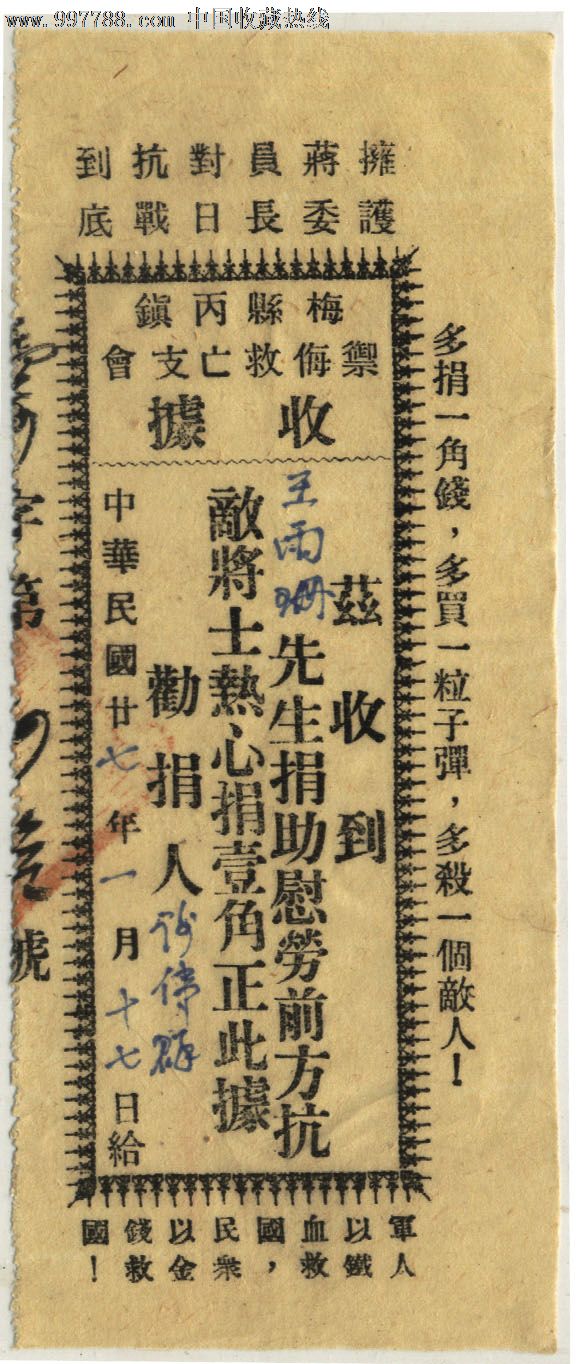 www.997788.com 中国收藏热线
擁護蔣委員長對日抗戰到底
多捐一角錢，多買一粒子彈，多殺一個敵人！
梅縣丙鎮
禦侮救亡支會
收據
茲收到
王雨珊先生捐助慰勞前方抗
敵將士熱心捐壹角正此據
勸捐人
中華民國廿七年一月十七日給
字第
號
軍人以鐵血救國，民衆以金錢救國！